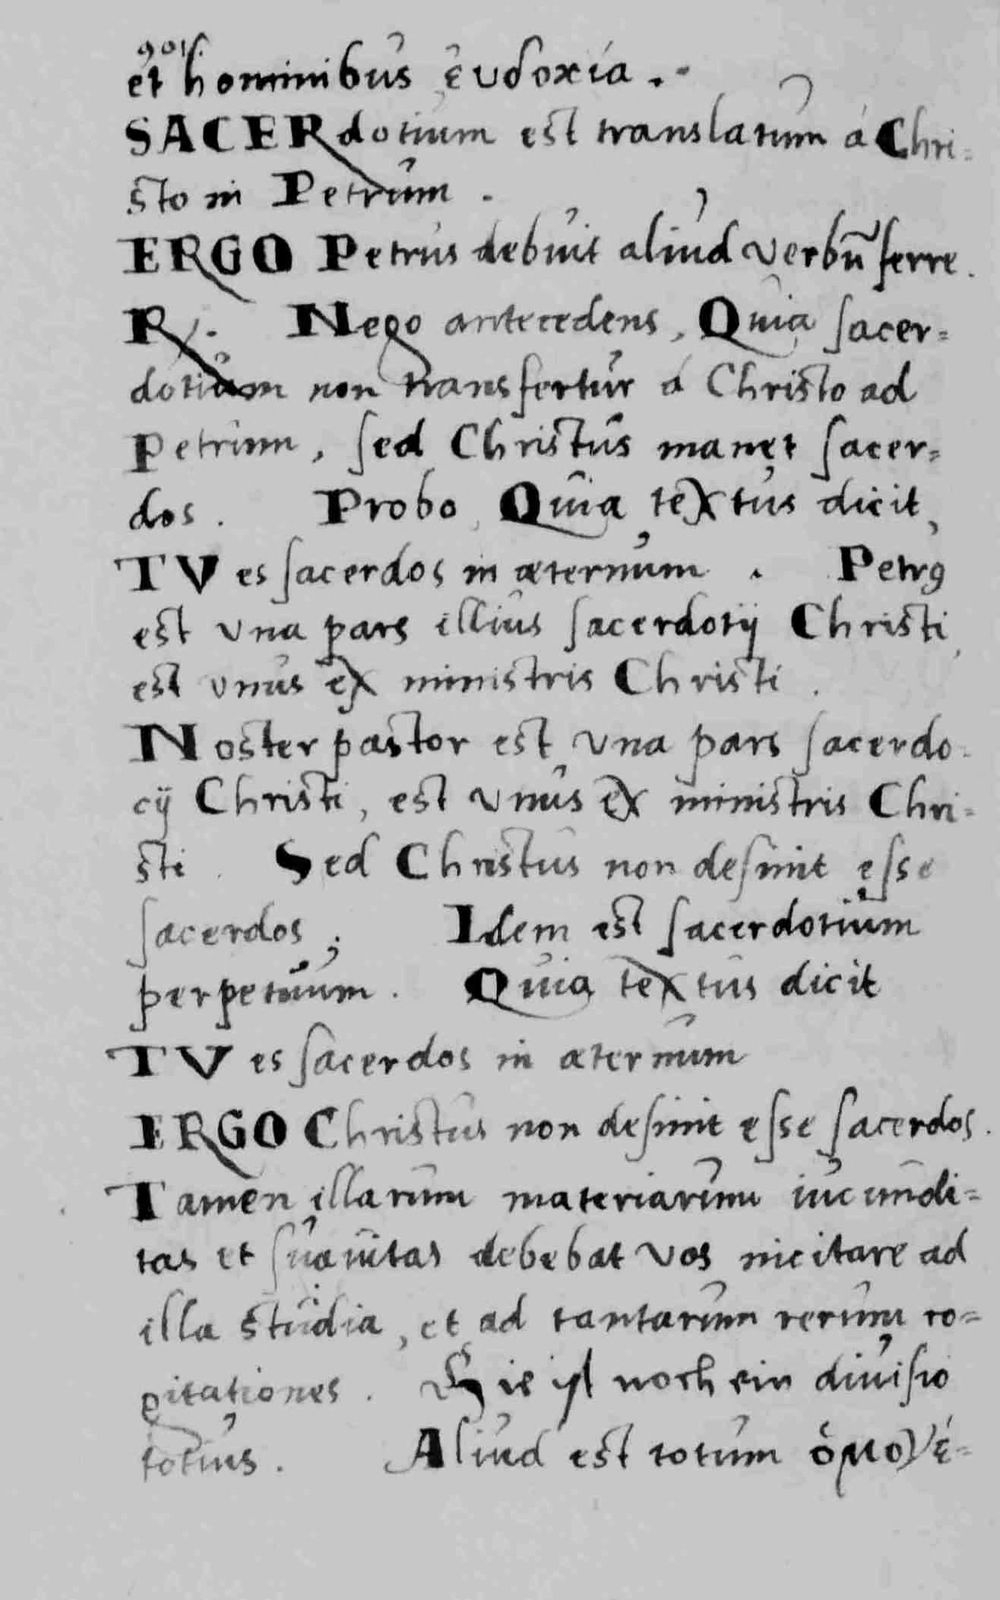 901.
et hominibus ἐυδοχία.
SACERdotium est translatum á Chri-
sto in Petrum.
ERGO Petrus debuit aliud verbū ferre.
R/. Nego antecedens, Quia sacer=
dotium non transfertur á Christo ad
Petrum, sed Christus manet sacer=
dos. Probo, Quia textus dicit,
TV es sacerdos in æternum. Petr9
est vna pars illius sacerdotij Christi,
est vnus ex ministris Christi.
Noster pastor est vna pars sacerdo-
cij Christi, est vnus ex ministris Chri-
sti. Sed Christus non desinit esse
sacerdos; Idem est sacerdotium
perpetuum. Quia textus dicit
TV es sacerdos in æternum
ERGO Christus non desinit esse sacerdos.
Tamen illarum materiarum iucundi-
tas et suauitas debebat vos incitare ad
illa studia, et ad tantarum rerum co=
gitationes. Hie ist noch ein diuisio
totius. Aliud est totum ὁμογέ-